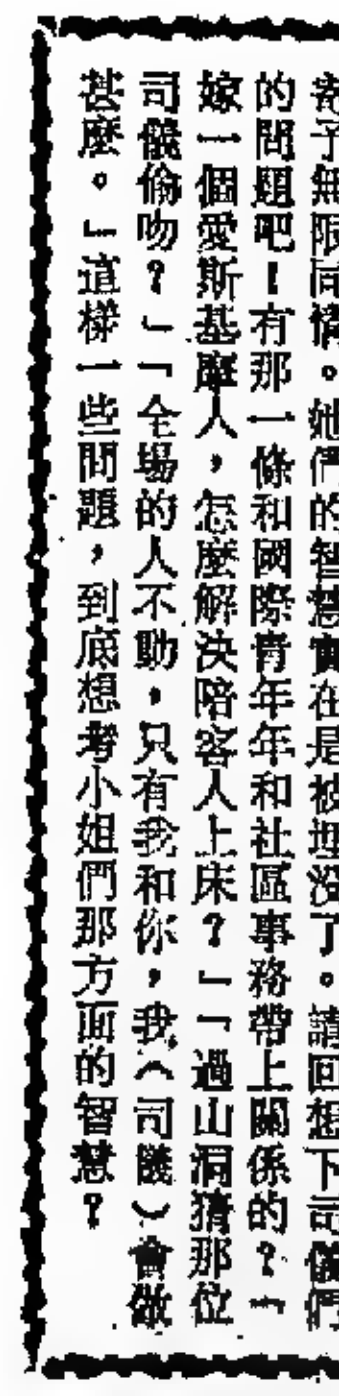 寄予無限同情。她們的智慧實在是被埋沒了。請回想下司儀們
的問題吧！有那一條和國際青年年和社區事務帶上關係的？「
嫁一個愛斯基摩人，怎麼解決陪客人上床？」「過山洞猜那位
司儀偷吻？」「全場的人不動，只有我和你，我（司機）會做
甚麼。」這樣一些問題，到底想考小姐們那方面的智慧？